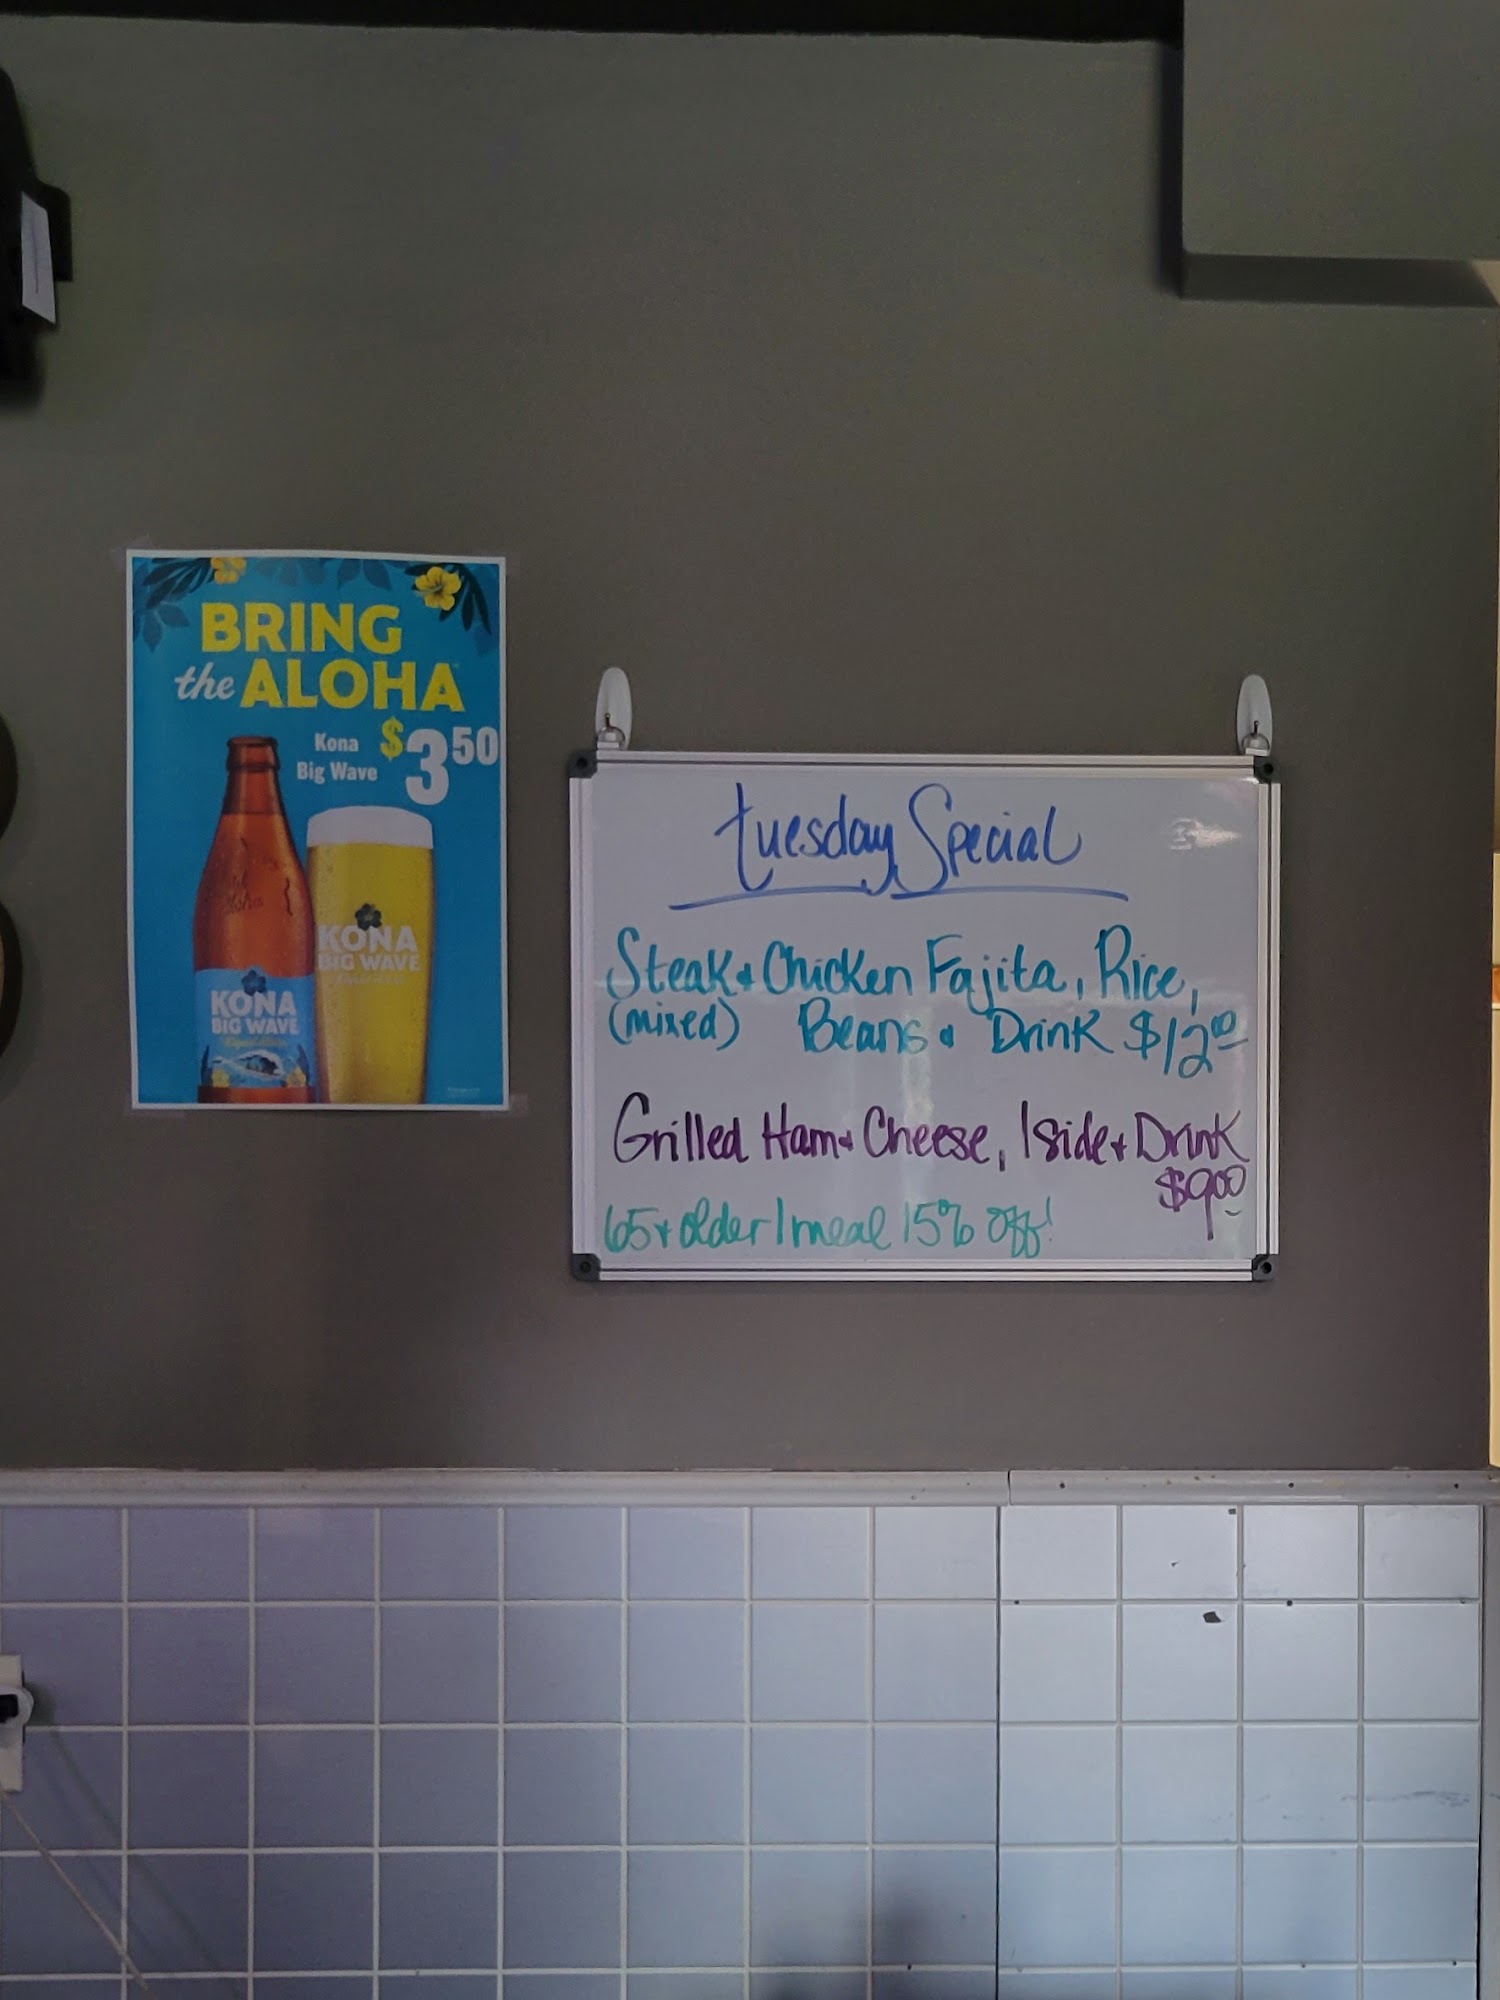 BRING
the ALOHA
Kona
Big Wave
$3.50
KONA
BIG WAVE
KONA
BIG WAVE
tuesday Special
Steak & Chicken Fajita, Rice,
(mixed) Beans & Drink $12.00
Grilled Ham & Cheese, 1 side & Drink
$9.00
65 & older 1 meal 15% Off!